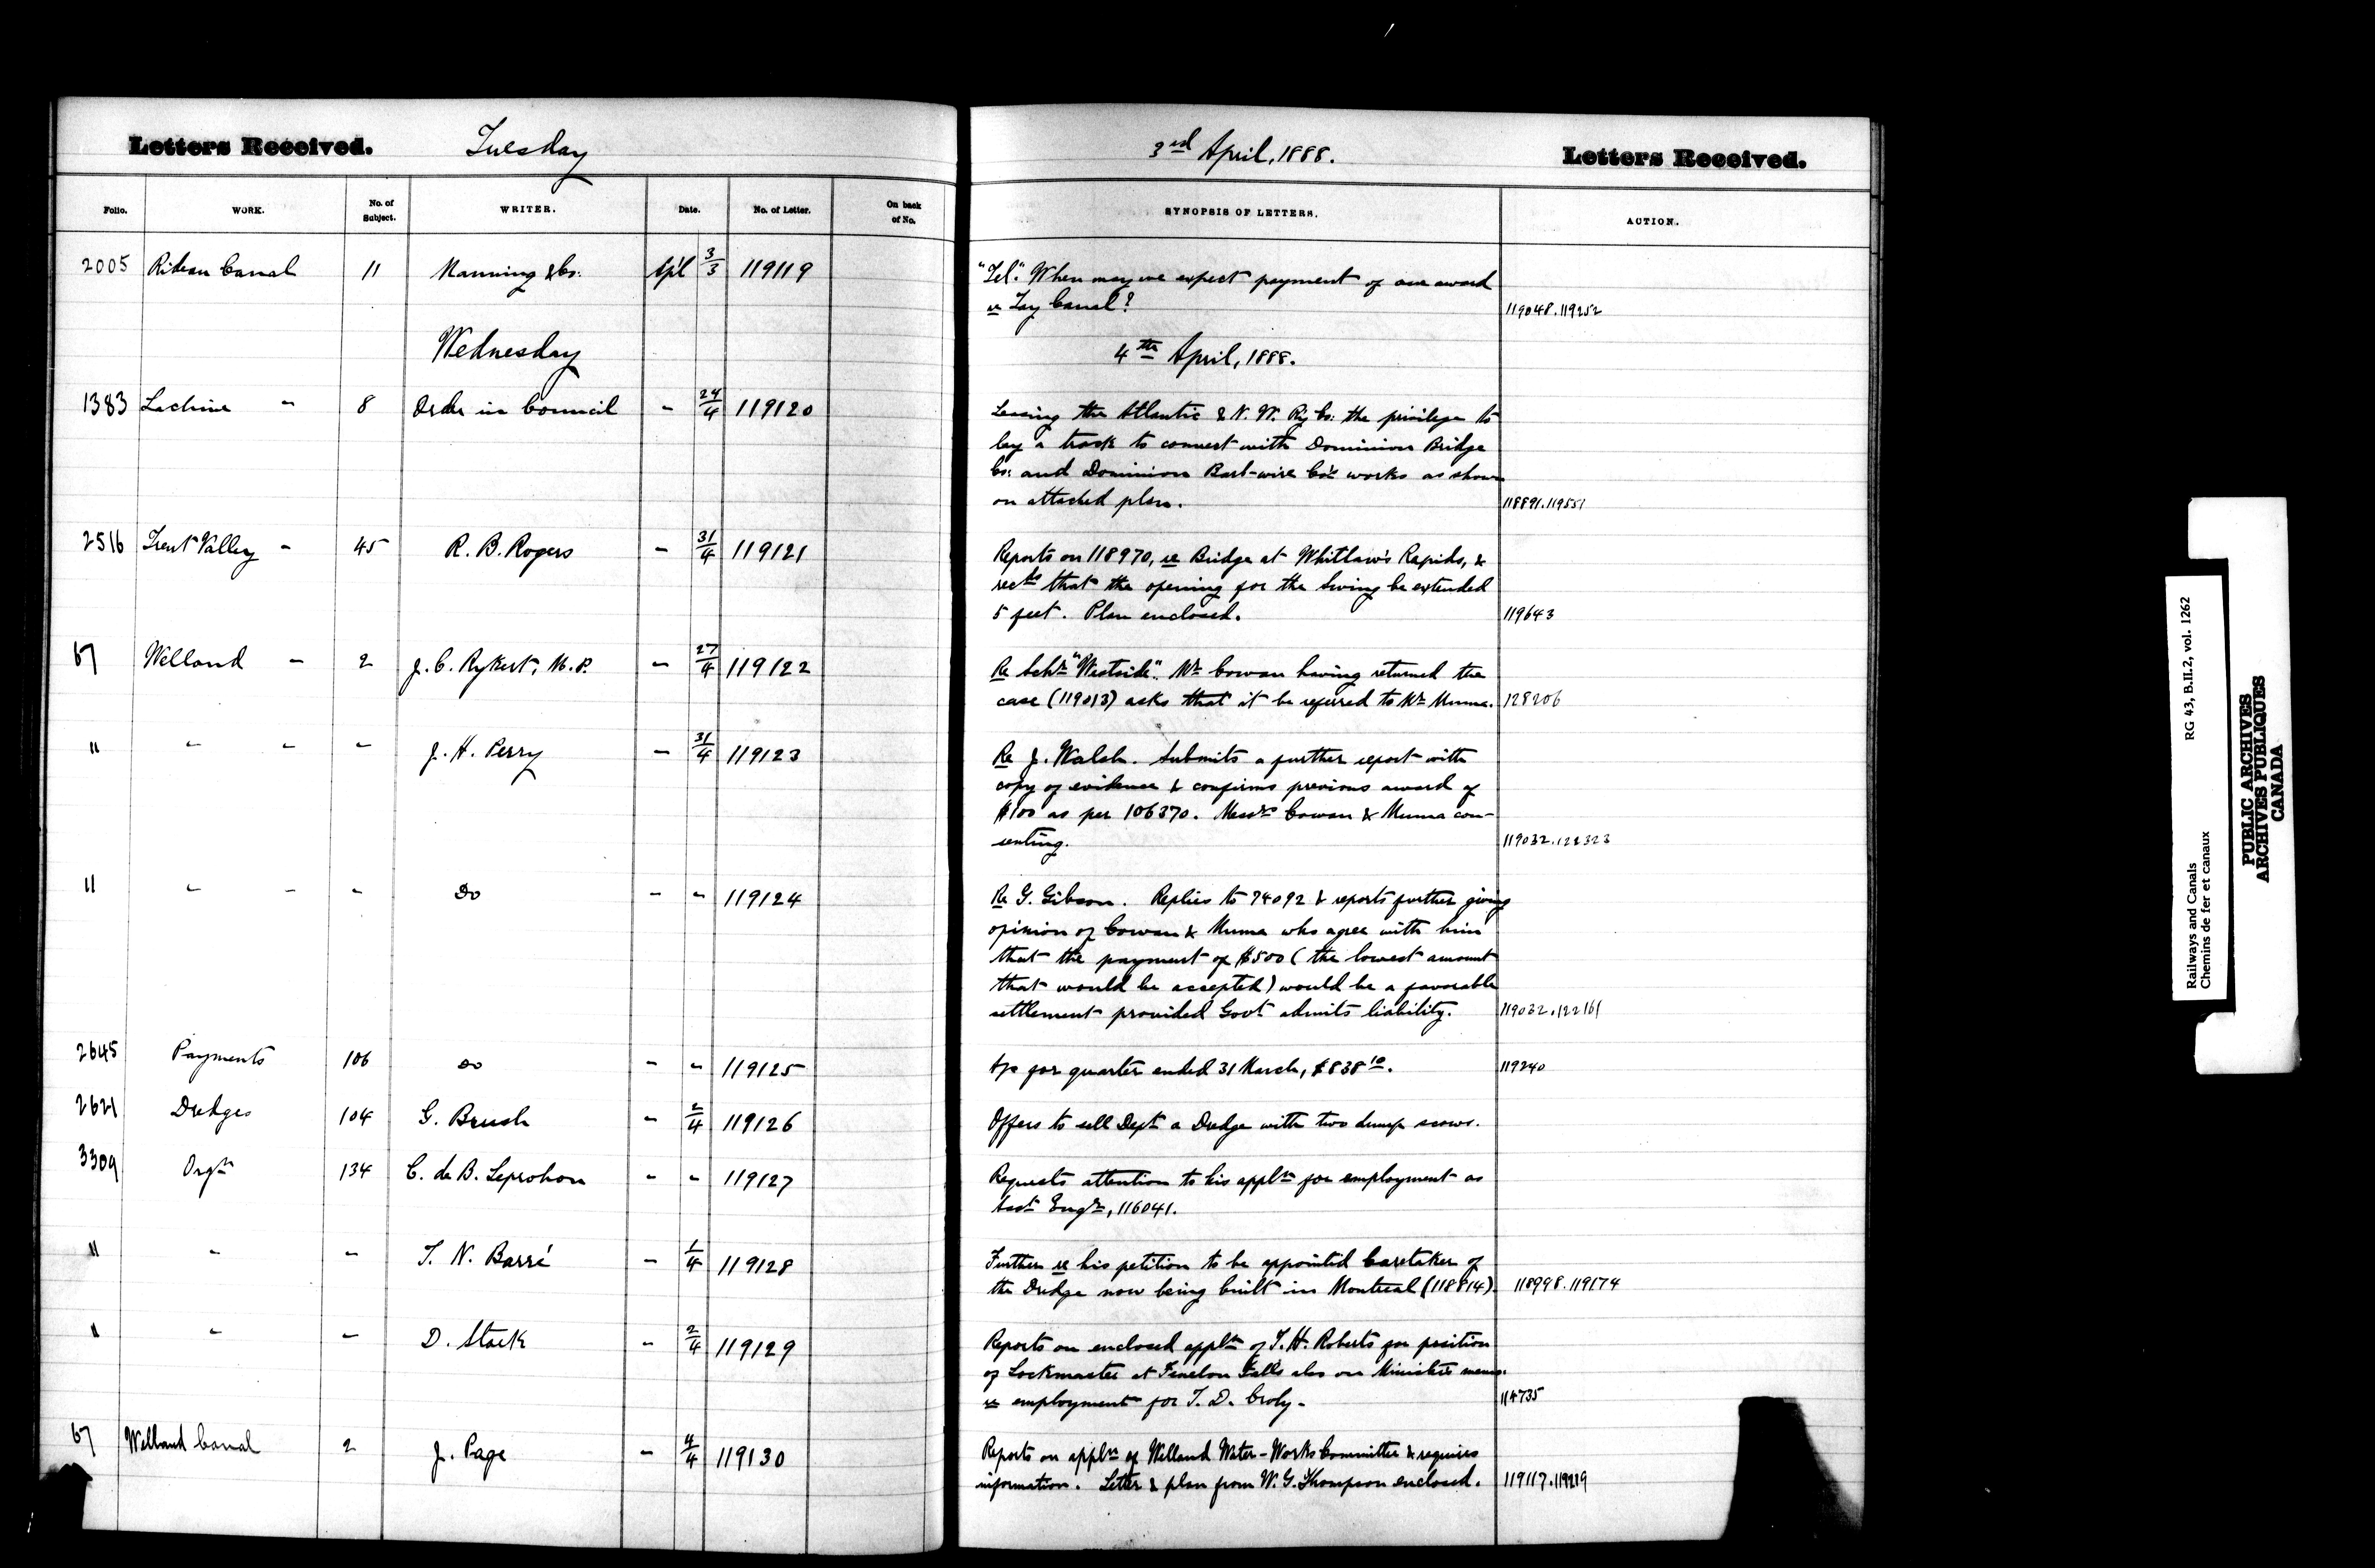 Letters Received. Tuesday 3rd April, 1888. Letters Received.
Folio. WORK. No. of Subject. WRITER. Date. No. of Letter. On back of No. SYNOPSIS OF LETTERS. ACTION.
2005 Rideau Canal 11 Manning & Co: Apl 3/3 119119 "Tel". When may we expect payment of our award
re Tay Canal? 119048.119252
Wednesday 4th April, 1888.
1383 Lachine " 8 Order in Council " 24/4 119120 Leasing the Atlantic & N. W. Ry Co: the privilege to
lay a track to connect with Dominion Bridge
Co: and Dominion Barb-wire Co's works as shown
on attached plan. 118891.119551
2516 Trent Valley " 45 R. B. Rogers " 31/4 119121 Reports on 118970, re Bridge at Whitlaw's Rapids, &
recds that the opening for the Swing be extended
5 feet. Plan enclosed. 119643
67 Welland " 2 J. C. Rykert, M.P. " 27/4 119122 Re Schr "Westside". Mr Cowan having returned the
case (119013) asks that it be referred to Mr Muma. 128206
" " " " J. H. Perry " 31/4 119123 Re J. Walsh. Submits a further report with
copy of evidence & confirms previous award of
$100 as per 106370. Messrs Cowan & Muma con-
senting. 119032.122323
" " " " Do " " 119124 Re G. Gibson. Replies to 74092 & reports further giving
opinion of Cowan & Muma who agree with him
that the payment of $500 (the lowest amount
that would be accepted) would be a favorable
settlement provided Govt admits liability. 119032.122161
2645 Payments 106 Do " " 119125 A/c for quarter ended 31 March, $838 10. 119240
2621 Dredges 104 G. Brush " 2/4 119126 Offers to sell Dept a Dredge with two dump scows.
3309 Orgn 134 C. de B. Leprohon " " 119127 Requests attention to his appln for employment as
Asst Engr, 116041.
" " " T. N. Barré " 1/4 119128 Further re his petition to be appointed Caretaker of
the Dredge now being built in Montreal (118814). 118998.119174
" " " D. Stark " 2/4 119129 Reports on enclosed appln of T. H. Roberts for position
of Lockmaster at Fenelon Falls also on Minister's memo.
re employment for T. D. Croly. 114735
67 Welland Canal 2 J. Page " 4/4 119130 Reports on appln of Welland Water-Works Committee & requires
information. Letter & plan from W. G. Thompson enclosed. 119117.119219
Railways and Canals RG 43, B.II.2, vol. 1262
Chemins de fer et canaux
PUBLIC ARCHIVES
ARCHIVES PUBLIQUES
CANADA